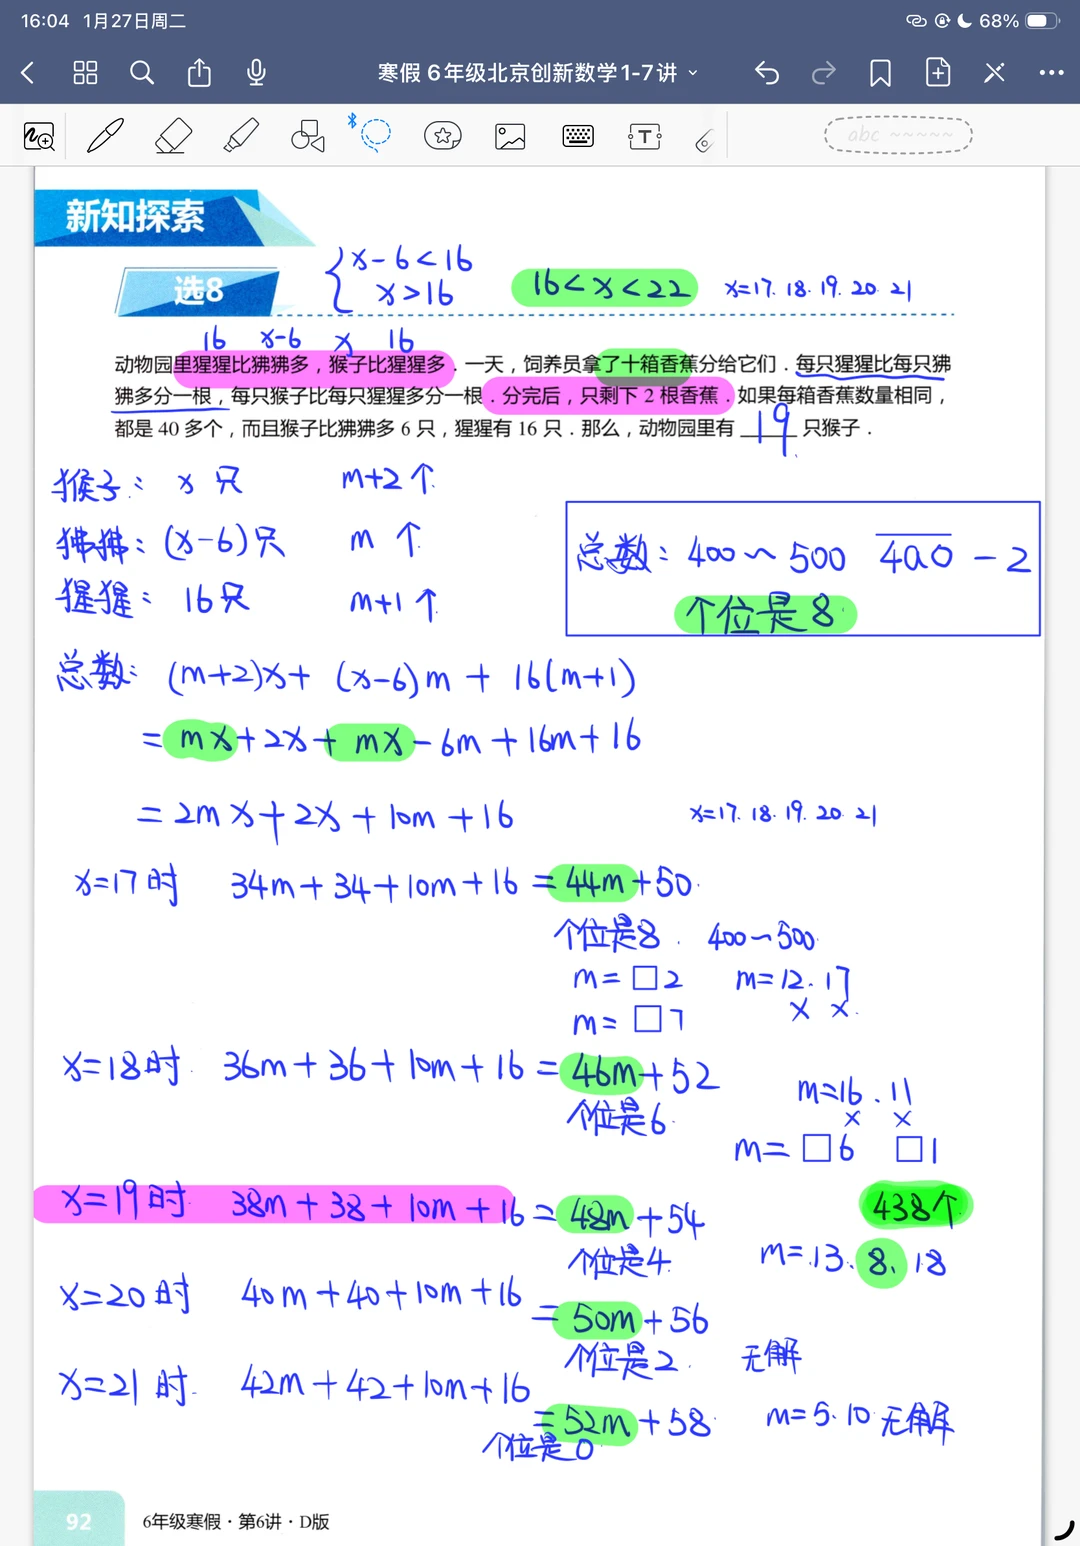 16:04 1月27日周二 68%
寒假 6年级北京创新数学1-7讲
abc
新知探索
选8
x-6<16
x>16
16<x<22 x=17. 18. 19. 20. 21
16 x-6 x 16
动物园里猩猩比狒狒多，猴子比猩猩多．一天，饲养员拿了十箱香蕉分给它们．每只猩猩比每只狒
狒多分一根，每只猴子比每只猩猩多分一根．分完后，只剩下 2 根香蕉．如果每箱香蕉数量相同，
都是 40 多个，而且猴子比狒狒多 6 只，猩猩有 16 只．那么，动物园里有 19 只猴子．
猴子: x 只 m+2个
狒狒: (x-6)只 m 个
猩猩: 16只 m+1个
总数: 400~500 4a0 -2
个位是8
总数: (m+2)x+ (x-6)m + 16(m+1)
= mx+2x+ mx-6m+16m+16
= 2mx+2x+10m+16 x=17. 18. 19. 20. 21
x=17时 34m+34+10m+16 =44m+50
个位是8. 400~500
m=□2 m=12. 17
m=□7 × ×
x=18时 36m+36+10m+16 =46m+52
个位是6 m=16. 11
× ×
m=□6 □1
x=19时 38m+38+10m+16 =48m+54 438个
个位是4 m=13. 8. 18
x=20时 40m+40+10m+16 =50m+56
个位是2. 无解
x=21时 42m+42+10m+16
=52m+58 m=5. 10 无解
个位是0
92 6年级寒假·第6讲·D版